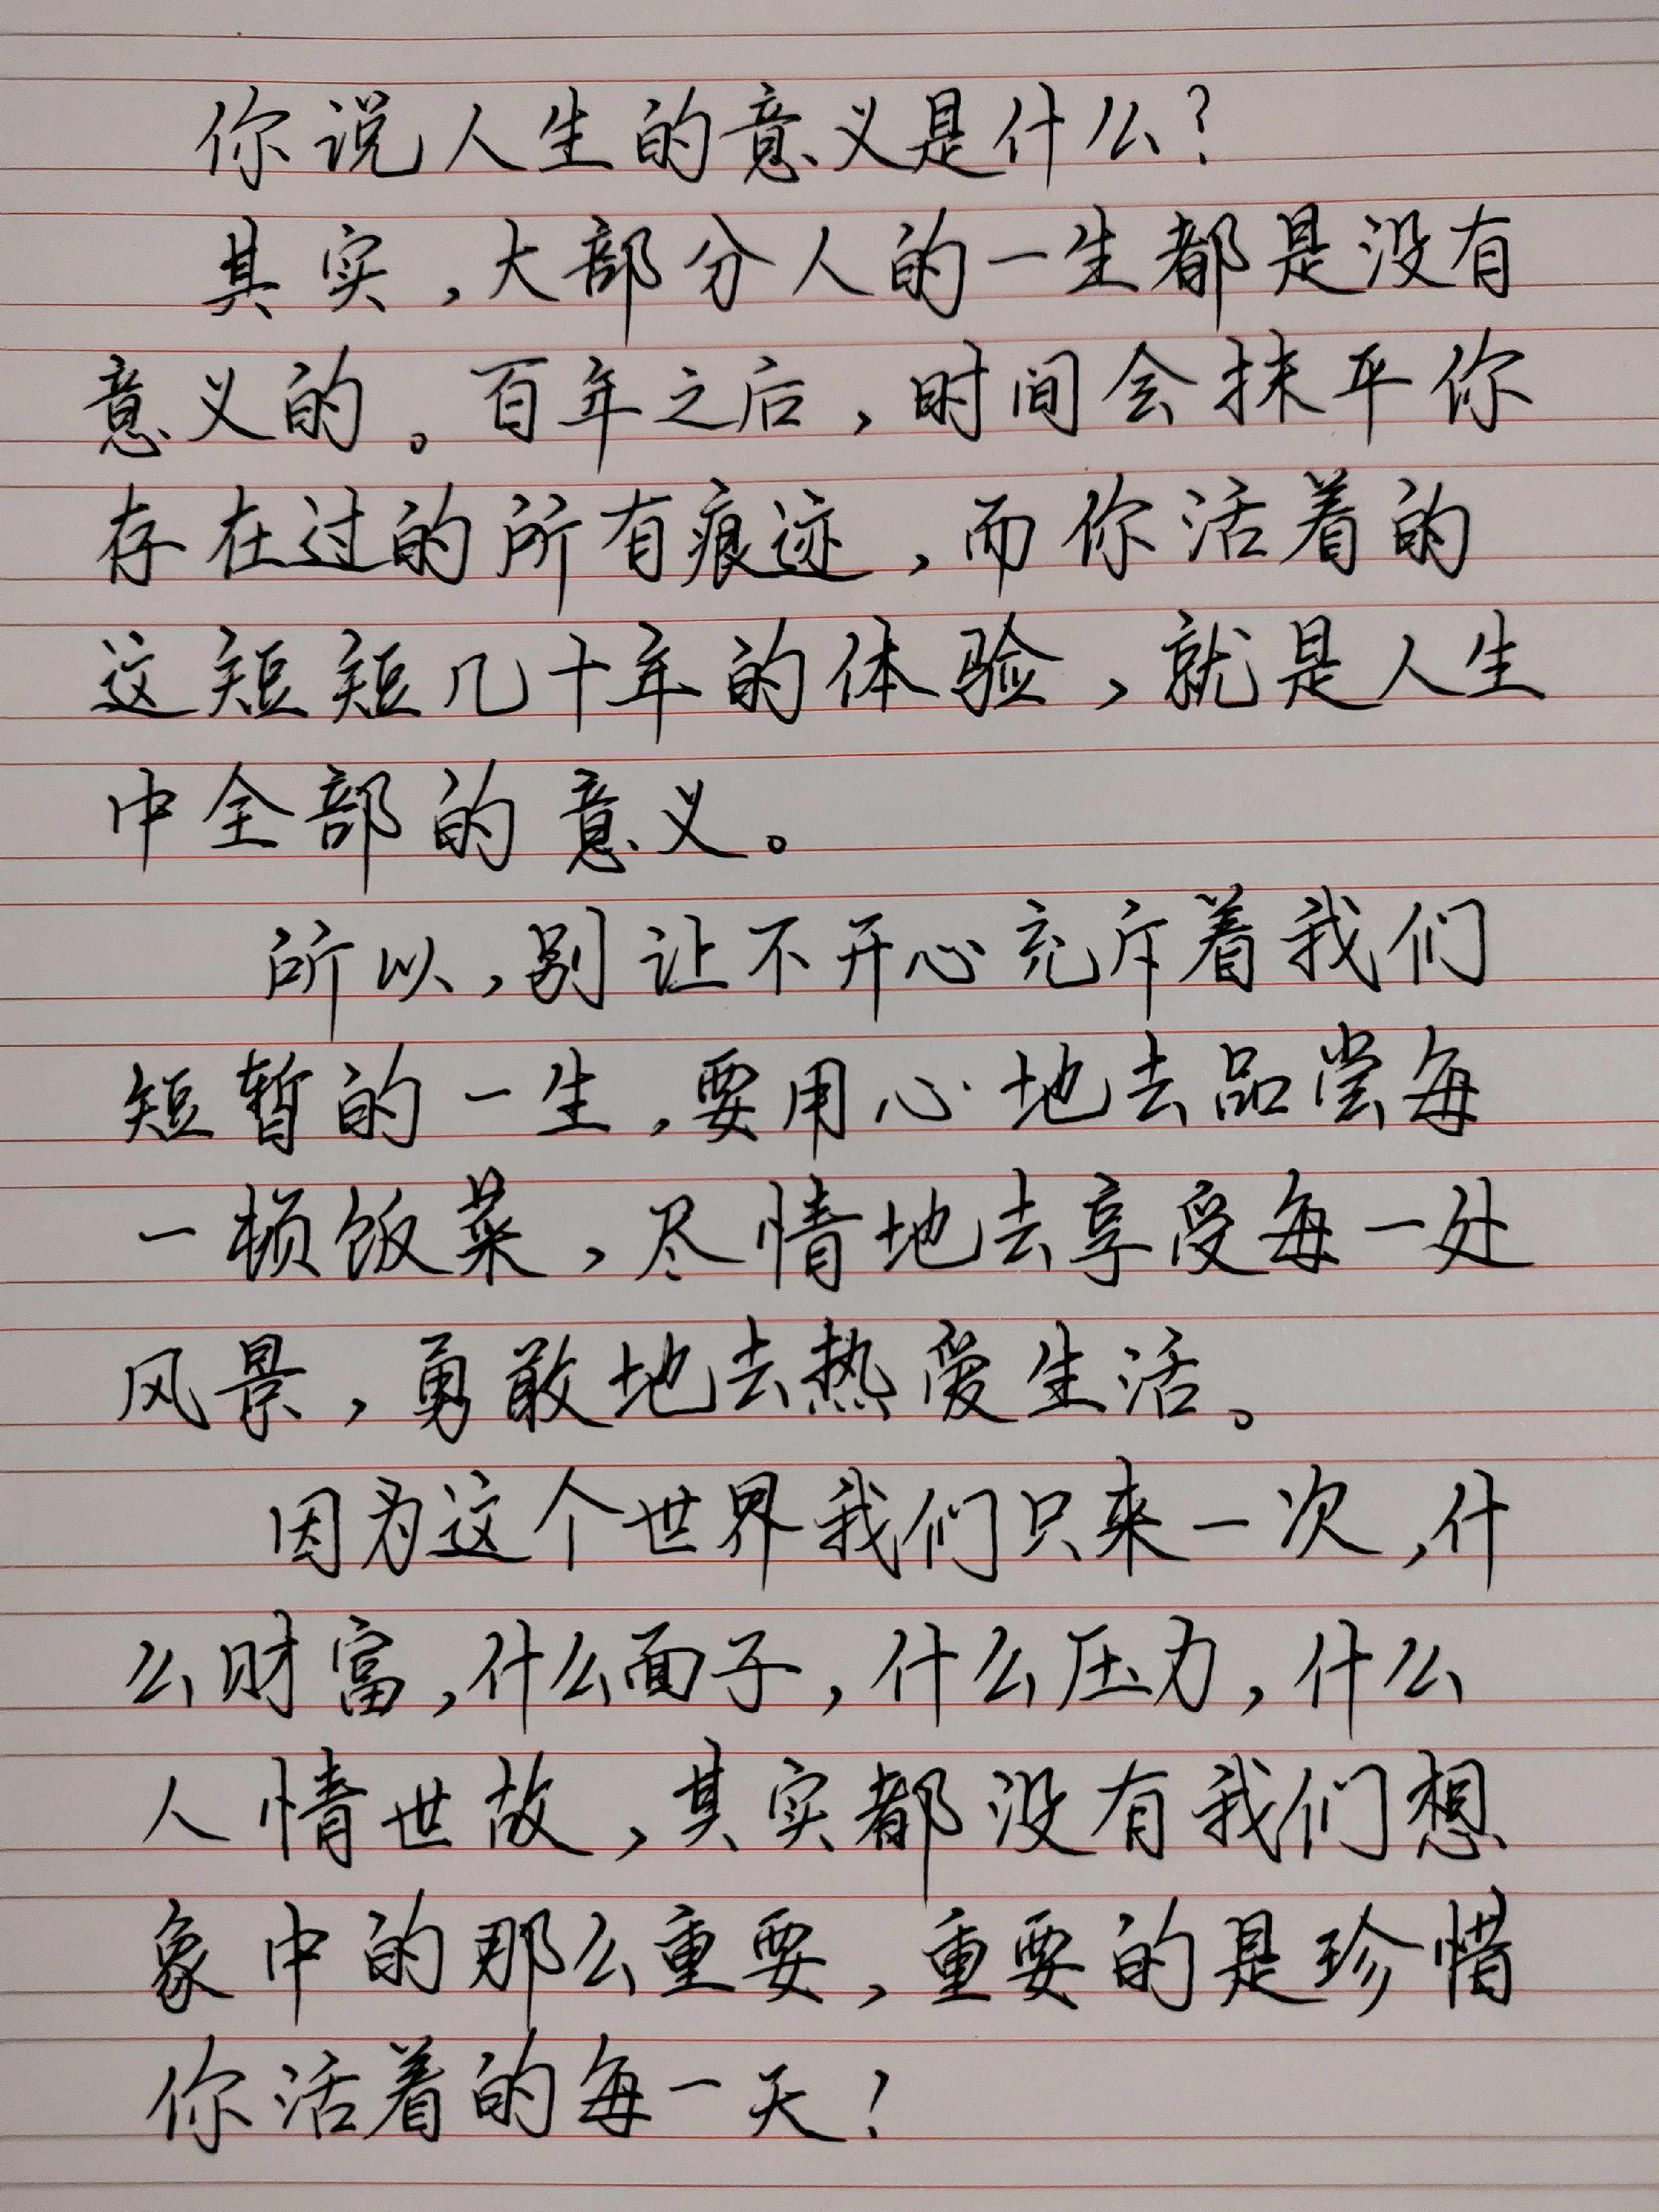 你说人生的意义是什么?
其实,大部分人的一生都是没有
意义的。百年之后,时间会抹平你
存在过的所有痕迹,而你活着的
这短短几十年的体验,就是人生
中全部的意义。
所以,别让不开心充斥着我们
短暂的一生,要用心地去品尝每
一顿饭菜,尽情地去享受每一处
风景,勇敢地去热爱生活。
因为这个世界我们只来一次,什
么财富,什么面子,什么压力,什么
人情世故,其实都没有我们想
象中的那么重要,重要的是珍惜
你活着的每一天!